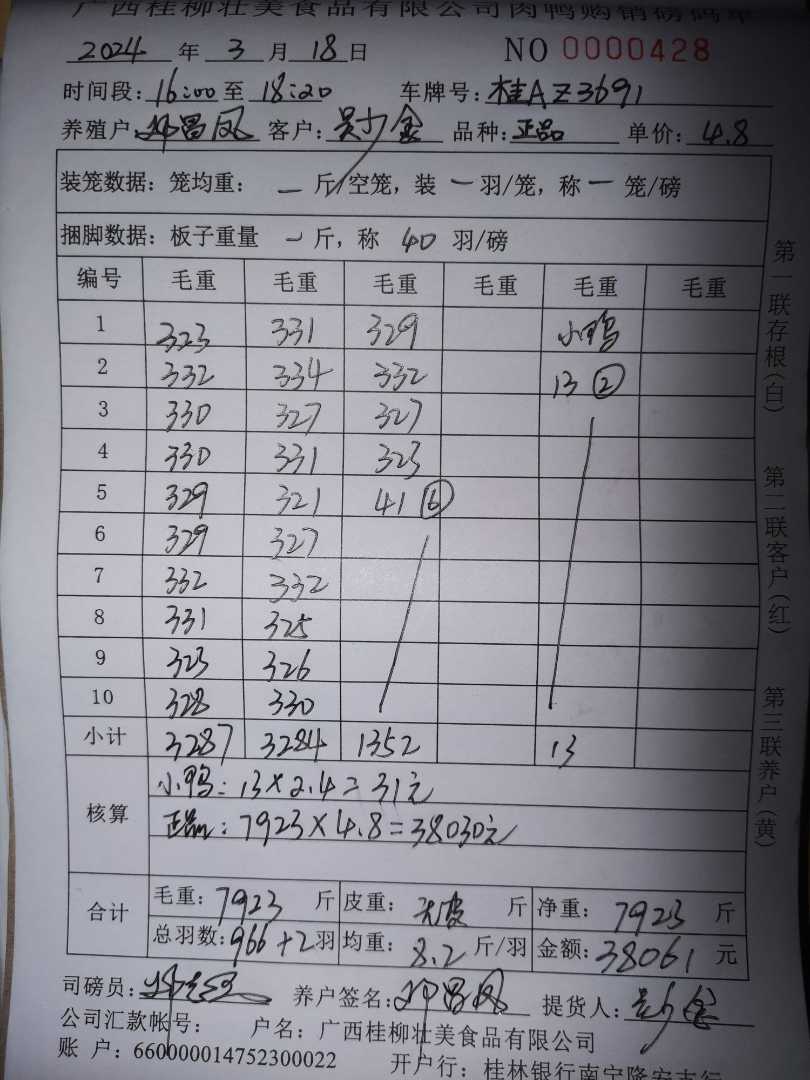 广西桂柳壮美食品有限公司肉鸭购销磅码单
2024 年 3 月 18 日 NO 0000428
时间段: 16:00 至 18:20 车牌号: 桂AZ3691
养殖户: 邓昌凤 客户: 吴少金 品种: 正品 单价: 4.8
装笼数据: 笼均重: 一 斤/空笼, 装 一 羽/笼, 称 一 笼/磅
捆脚数据: 板子重量 一 斤, 称 40 羽/磅
编号 毛重 毛重 毛重 毛重 毛重 毛重
1 323 331 329 小鸭
2 332 334 332 13 ②
3 330 327 327
4 330 331 323
5 329 321 41 ⑥
6 329 327
7 332 332
8 331 325
9 323 326
10 328 330
小计 3287 3284 1352 13
核算
小鸭: 13×2.4=31元
正品: 7923×4.8=38030元
合计
毛重: 7923 斤 皮重: 去皮 斤 净重: 7923 斤
总羽数: 966+2 羽 均重: 8.2 斤/羽 金额: 38061 元
司磅员: 养户签名: 邓昌凤 提货人: 吴少金
公司汇款帐号: 户名: 广西桂柳壮美食品有限公司
账 户: 660000014752300022 开户行: 桂林银行南宁隆安支行
第一联存根(白) 第二联客户(红) 第三联养户(黄)